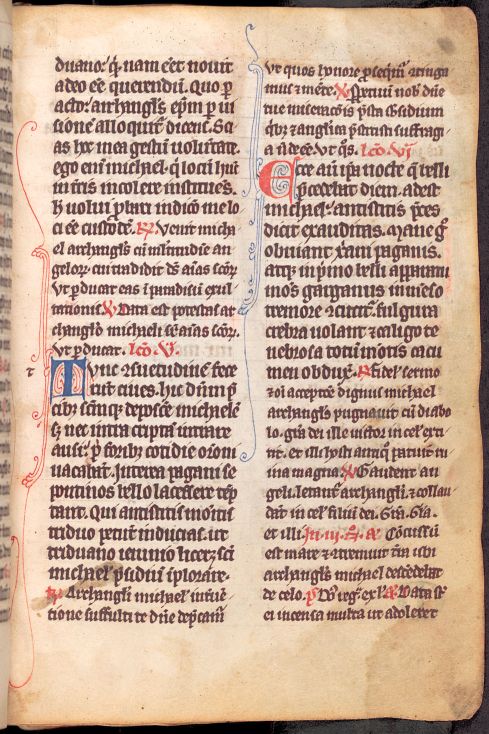 duano? q nam eet nouit
adeo ee querendũ. Quo p
acto? archangl's epm p ui
sione alloquit dicens. Sci
as hoc mea gestũ uoluntate.
ego eni michael q loci huic
in tris incolere institue's.
& uolui pbare indicio me lo
ci ee custode. R Venit micha
el archangls cũ multitudine an
gelor cui tradidit ds aias scor
vt pducat eas in paradisũ exul
tationis. V Data est potestas ar
changlo michaeli sr aias scor.
vt pducat. lco. V.
Tunc 7 suetudine fece
runt ciues. hic dnm p
cib scm q deposce michaele
s nec intra cripta intrare
ausi. p forib cotidie oroni
uacabant. Interea pagani se
ptutinos bello lacessere tep
tant. Qui antistitis monitis
triduo petunt inducias. ut
triduano ieiunio liceret sci
michael psidiũ iplorare.
R Archangli michael inter&
tione suffulti te dne depcam
Vt quos honore psequimur 7tinga
mus & mete. V Ppetuũ nob dne
tue miseracois psta subsidium
qb & anglica pstitisti suffragi
a ñ deee. Vt qs. lco. VI
Ecce aũ ipa nocte q belli
pcedebat diem. adest
michael. antistitis pces
dicit exauditas. Mane g
obuiant xpiani paganis.
atq in pmo belli apparatu
mos garganus inmenso
tremore 7cutit. fulgura
crebra uolant & caligo te
nebrosa totũ motis cacu
men obduxit. R Fidel' sermo
& oi acceptoe dignus michael
archangls pugnauit cũ diabo
lo. gra dei ille uictor in cel' exti
tit. et ille hostis antiqus passus rui
na magna. V Gaudent an
geli. letant archangli. & collau
dat in cel' filiũ dei. Gra. Gla.
et illi. In. iii. N. a. Cocussũ
est mare & 7tremuit tra ubi
archangls michael descedebat
de celo. p Dñs regt. exl. a Data st
ei incensa multa ut adoleret